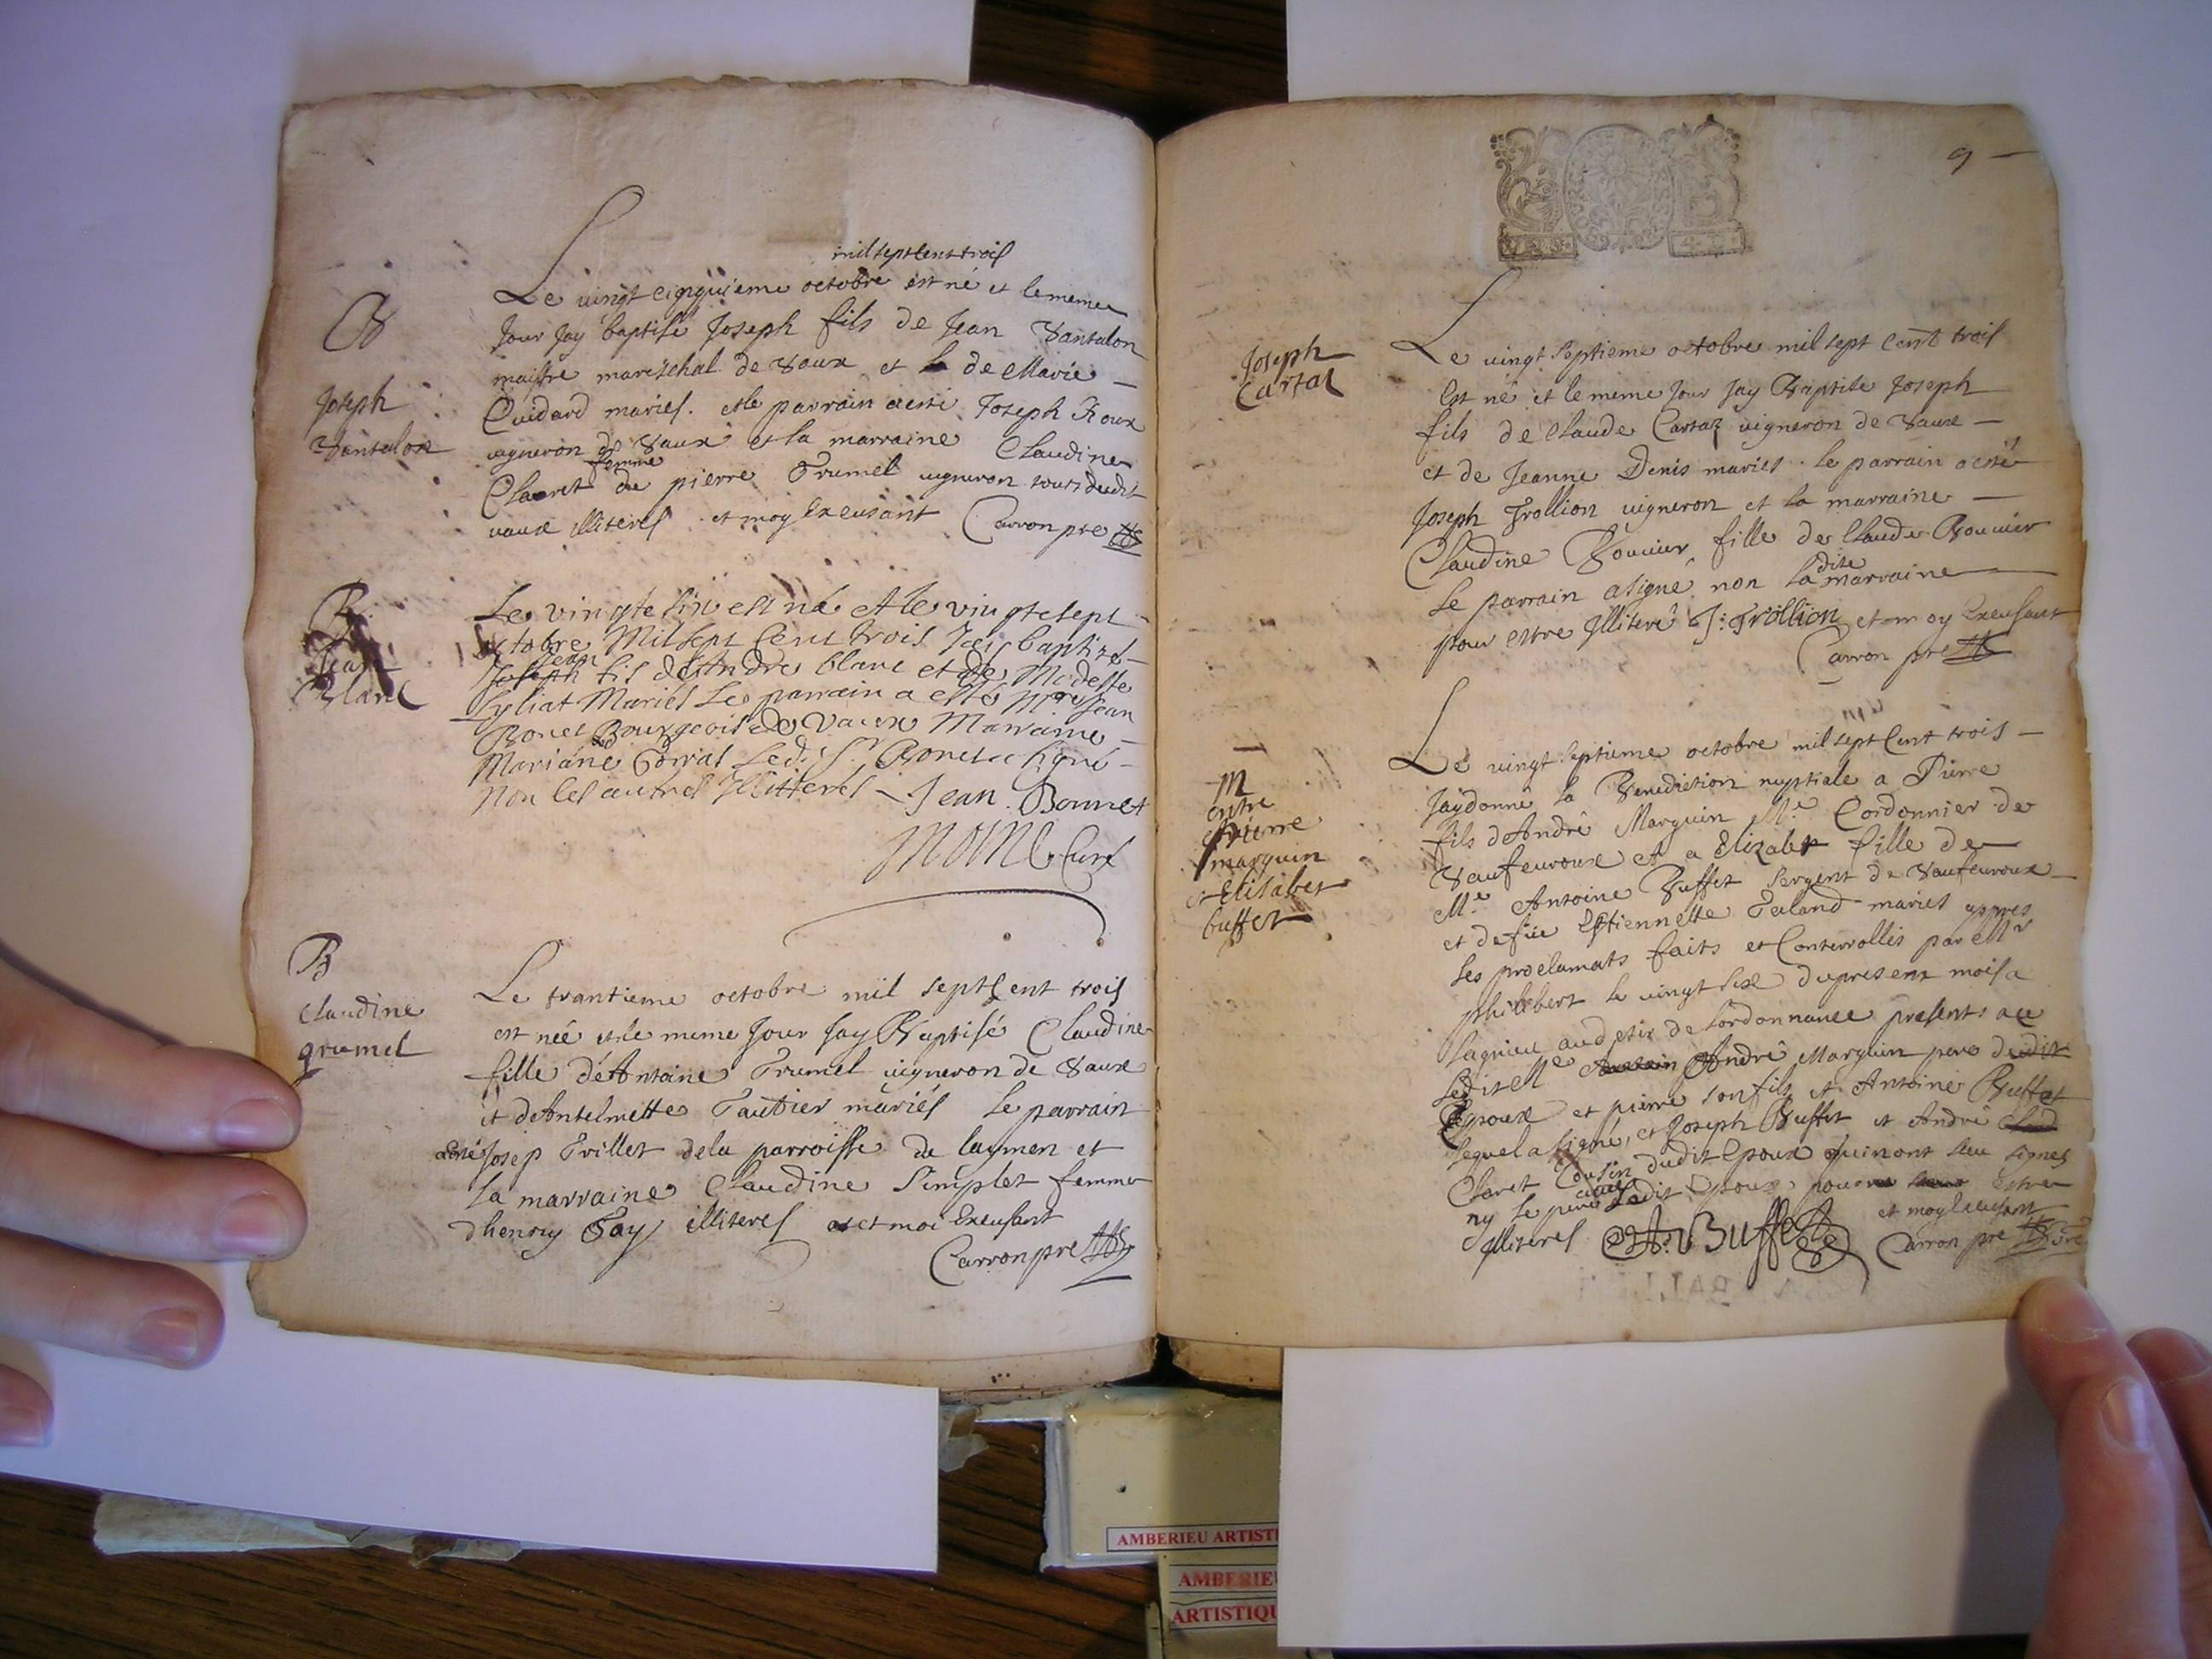 mil sept cent trois
Le vingt cinquieme octobre est né et le meme
Jour Jay baptisé Joseph fils de Jean Vantalon
maistre mareschal de Vaux et de Marie
Cuidard mariés. et le parrain a esté Joseph Roux
vigneron de Vaux et la marraine Claudine
femme
Claret de pierre Grumel vigneron tous dudit
vaux illiterés et moy Excusant Carron pre
B
Joseph
Vantalon
Le vingte six est né et le vingtesept
octobre Mil sept Cent trois Jai baptizé
Jean
Joseph fils de Andre blanc et de Modeste
Mariés Le parrain a esté Mre Jean
Bonet Bourgeois de Vaux Marraine
Mariane Corral Led. Sr Bonet a signé
non les autres Illitterés Jean Bonnet
Curé
B
Jean
Blanc
Le trantieme octobre mil sept Cent trois
est neé et le meme Jour Jay Baptisé Claudine
fille d'Antoine Grumel vigneron de Vaux
et d'Antelmette Gautier mariés Le parrain
a esté Josep Trillet de la parroisse de lagnieu et
La marraine Claudine Simplet femme
d henry Fay illiterés et moi Excusant
Carron pre
B
Claudine
grumel
9
Joseph
Cartaz
Le vingt septieme octobre mil sept cent trois
Est né et le meme Jour Jay Baptisé Joseph
fils de Claude Cartaz vigneron de Vaux
et de Jeanne Denis mariés. le parrain a esté
Joseph Trollion vigneron et la marraine
Claudine Bouvier fille de Claude Bouvier
dite
Le parrain a signé non la marraine
pour estre Illiteré J. Trollion et moy Excusant
Carron pre
M
entre
pierre
marguin
et Elisabet
buffet
Le vingt septieme octobre mil sept Cent trois
Jay donné la Benediction nuptiale a Pierre
fils d'André Marguin Me Cordonnier de
Vaufevroux et a Elizabet fille de
Me Antoine Buffet sergent de Vaufevroux
et de füe Estiennette mariés appres
Les proclamats faits et Conterrollés par Mr
philibert le vingt six du present mois a
Lagnieu au desir de Lordonnance presents a ce
Ledit Me André Marguin pere dudit
Epoux et pierre son fils et Antoine Buffet
Lequel a signé, et Joseph Buffet et André
Claret Cousin dudit Epoux qui n ont sceu signer
ny le pere dudit Epoux pour estre
Illiterés A. Buffet et moy Excusant
Carron pre
AMBERIEU ARTISTI
AMBERIE
ARTISTIQU